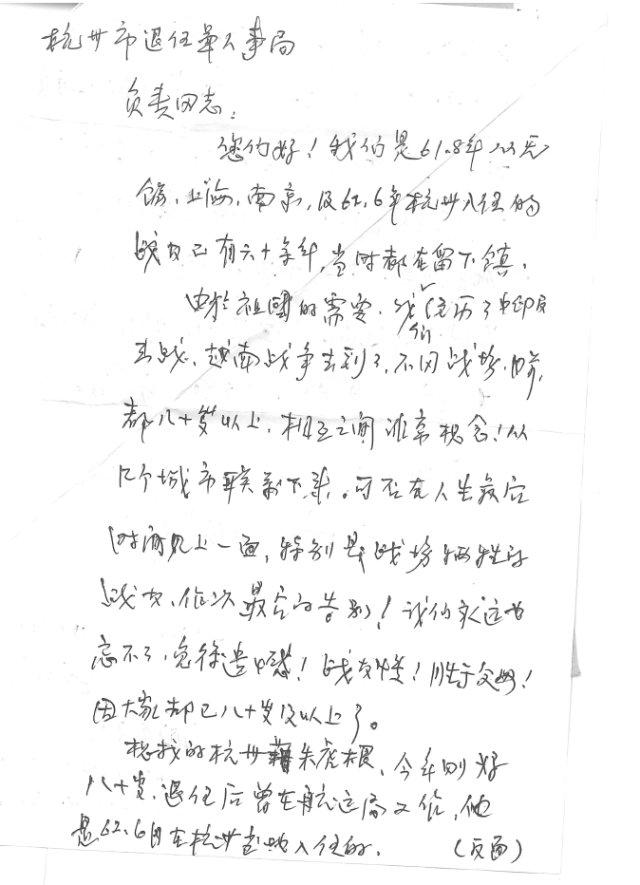 杭州市退伍军人事局
负责同志：
您们好！我们是61.8年从无
锡、上海、南京，及62.6年杭州入伍的
战友已有六十年，当时都在留下镇。
由于祖國的需要，我们经历了中印反
击战，越南战争去到了，不同战场，
都八十岁以上，相互之间非常想念！从
几个城市联系下来，可否在人生最后
时间见上一面，特别是战场牺牲的
战友，作次最后的告别！我们永远也
忘不了，免得遗憾！战友情！胜于父母！
因大家都已八十岁及以上了。
想找的杭州籍朱虎根，今年刚好
八十岁，退伍后曾在航运局工作，他
是62.6月在杭州当地入伍的。 （反面）